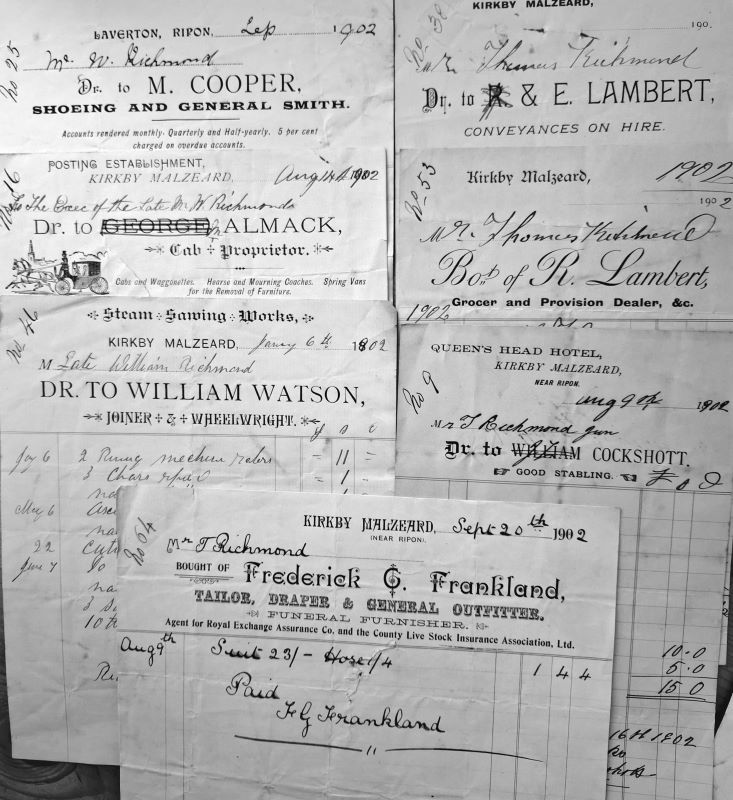 LAVERTON, RIPON, Sep 1902
No 25
Mr. W. Richmond
Dr. to M. COOPER,
SHOEING AND GENERAL SMITH.
Accounts rendered monthly. Quarterly and Half-yearly. 5 per cent
charged on overdue accounts.
POSTING ESTABLISHMENT,
KIRKBY MALZEARD, Aug 14th 1902
No 16
To The Exec of the Late Mr W Richmonds
Dr. to GEORGE ALMACK,
Cab Proprietor.
Cabs and Waggonettes. Hearse and Mourning Coaches. Spring Vans
for the Removal of Furniture.
Steam Sawing Works,
No 46
KIRKBY MALZEARD, Jany 6th 1902
M Late William Richmond
DR. TO WILLIAM WATSON,
JOINER & WHEELWRIGHT.
Jay 6 2 machine = 11 =
3 Chars = 1 =
May 6
22
June 7
10th
KIRKBY MALZEARD,
190
No 38
Mr Thomas Richmond
Dr. to & E. LAMBERT,
CONVEYANCES ON HIRE.
No 53
Kirkby Malzeard, 1902
1902
Mr. Thomas Richmond
Bot. of R. Lambert,
Grocer and Provision Dealer, &c.
1902
QUEEN'S HEAD HOTEL,
KIRKBY MALZEARD,
NEAR RIPON.
No 9
Aug 9th 1902
Mr T Richmond jun
Dr. to WILLIAM COCKSHOTT.
GOOD STABLING.
£ s D
10-0
5-0
15 0
16th 1902
KIRKBY MALZEARD, Sept 20th 1902
(NEAR RIPON).
No 64
Mr T Richmond
BOUGHT OF Frederick G. Frankland,
TAILOR, DRAPER & GENERAL OUTFITTER.
FUNERAL FURNISHER.
Agent for Royal Exchange Assurance Co. and the County Live Stock Insurance Association, Ltd.
Aug 9th Suit 23/- Hose 1/4 1 4 4
Paid
F G Frankland